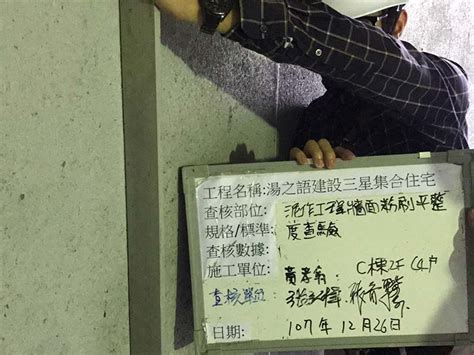 工程名稱:湯之語建設三星集合住宅
查核部位: 泥作工程牆面粉刷平整
規格/標準: 度查驗
查核數據:
施工單位: C棟2F C4戶
查核單位:
日期: 107年12月26日